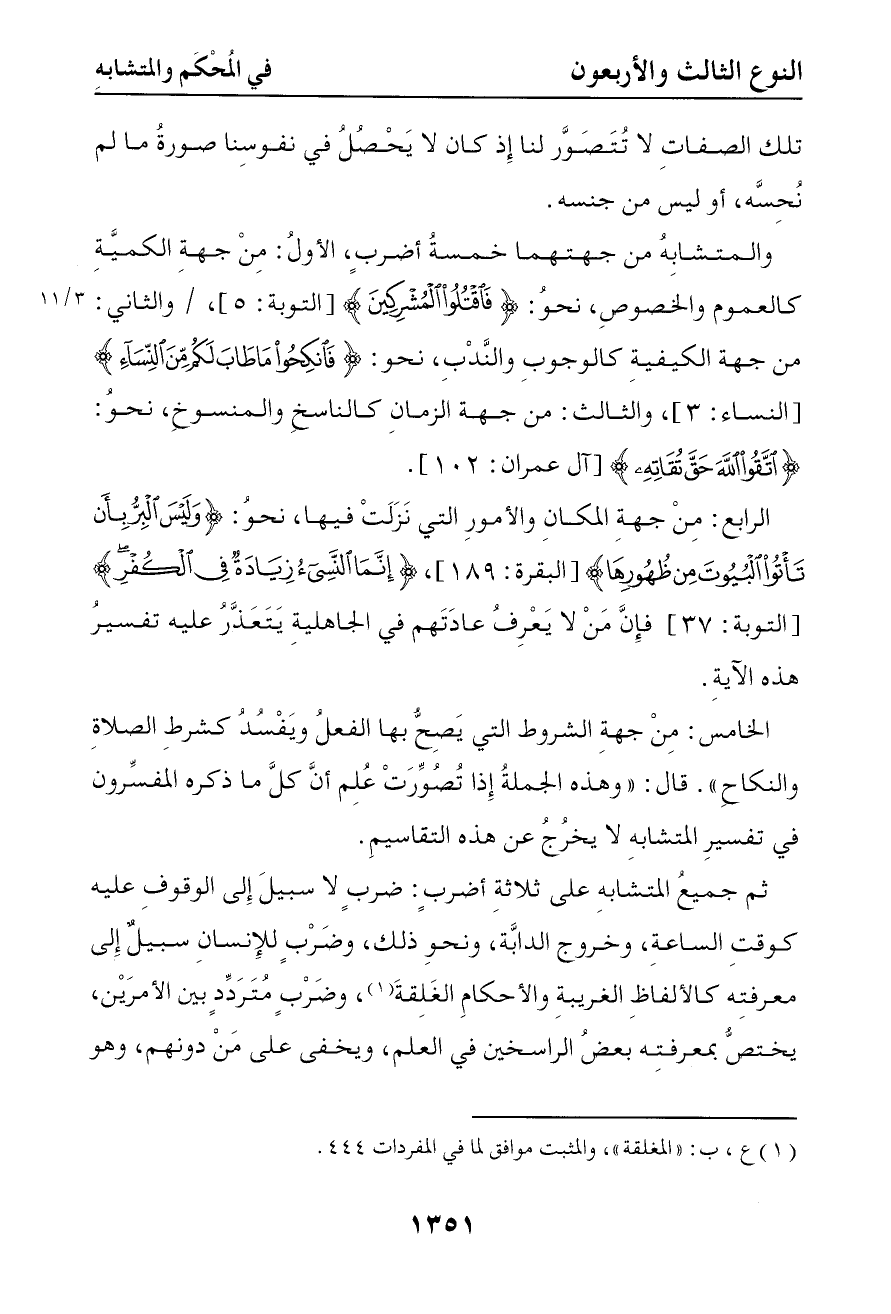 النوع الثالث والأربعون في المُحْكَم والمتشابهِ
تلك الصفاتِ لا تُتَصَوَّر لنا إذ كان لا يَحْصُلُ في نفوسنا صورةُ ما لم
نُحِسَّه، أو ليس من جنسه.
والمتشابهُ من جهتهما خمسةُ أضربٍ، الأولُ: مِنْ جهةِ الكميَّةِ
كالعموم والخصوصِ، نحوُ: ﴿فَٱقۡتُلُواْ ٱلۡمُشۡرِكِينَ﴾ [التوبة: ٥]، / والثاني: ١١/٣
من جهة الكيفيةِ كالوجوبِ والنَّدْبِ، نحو: ﴿فَٱنكِحُواْ مَا طَابَ لَكُم مِّنَ ٱلنِّسَآءِ﴾
[النساء: ٣]، والثالث: من جهة الزمانِ كالناسخِ والمنسوخِ، نحوُ:
﴿ٱتَّقُواْ ٱللَّهَ حَقَّ تُقَاتِهِۦ﴾ [آل عمران: ١٠٢].
الرابع: مِنْ جهةِ المكانِ والأمورِ التي نَزَلَتْ فيها، نحوُ: ﴿وَلَيۡسَ ٱلۡبِرُّ بِأَن
تَأۡتُواْ ٱلۡبُيُوتَ مِن ظُهُورِهَا﴾ [البقرة: ١٨٩]، ﴿إِنَّمَا ٱلنَّسِيٓءُ زِيَادَةٞ فِي ٱلۡكُفۡرِۖ﴾
[التوبة: ٣٧] فإنَّ مَنْ لا يَعْرِفُ عادَتَهم في الجاهلية يَتَعَذَّرُ عليه تفسيرُ
هذه الآيةِ.
الخامس: مِنْ جهةِ الشروط التي يَصِحُّ بها الفعلُ ويَفْسُدُ كشرطِ الصلاةِ
والنكاحِ». قال: «وهذه الجملةُ إذا تُصُوِّرَتْ عُلِم أنَّ كلَّ ما ذكره المفسِّرون
في تفسيرِ المتشابهِ لا يخرُجُ عن هذه التقاسيمِ.
ثم جميعُ المتشابه على ثلاثةِ أضربٍ: ضربٍ لا سبيلَ إلى الوقوفِ عليه
كوقتِ الساعةِ، وخروجِ الدابَّة، ونحوِ ذلك، وضَرْبٍ للإنسانِ سبيلٌ إلى
معرفتِه كالألفاظِ الغريبةِ والأحكامِ الغَلِقةِ(١)، وضَرْبٍ مُتَرَدِّدٍ بين الأمرَيْنِ،
يختصُّ بمعرفتِه بعضُ الراسخين في العلم، ويخفى على مَنْ دونهم، وهو
(١) ع ، ب: «المغلقة»، والمثبت موافق لما في المفردات ٤٤٤ .
١٣٥١